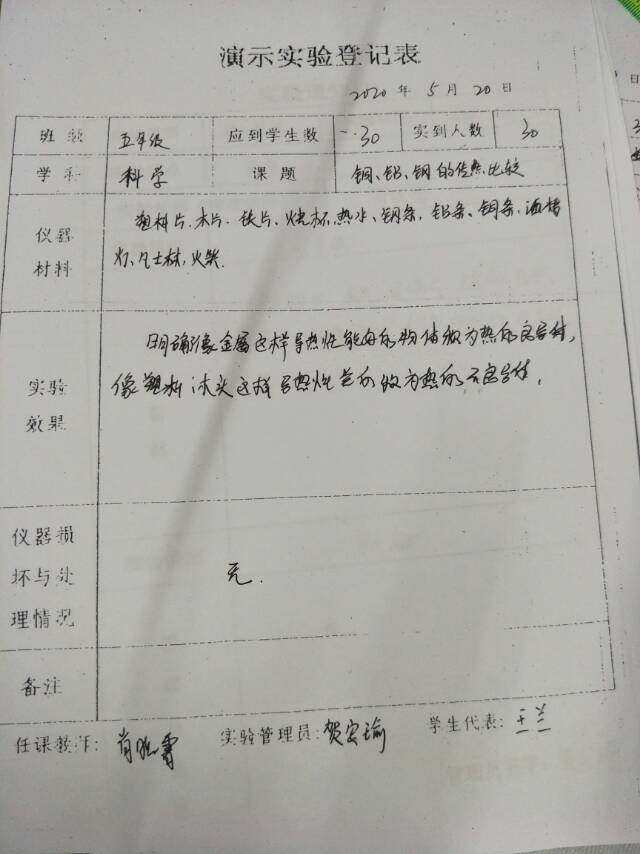 演示实验登记表
2020 年 5 月 20 日
班级 五年级 应到学生数 30 实到人数 30
学科 科学 课题 铜、铝、钢的传热比较
仪器材料 塑料片、木片、铁片、烧杯、热水、钢条、铝条、铜条、酒精
灯、凡士林、火柴.
实验效果 明确像金属这样导热性能好的物体称为热的良导体,
像塑料、木头这样导热性差的称为热的不良导体.
仪器损坏与处理情况 无.
备注
任课教师: 肖 实验管理员: 贺安瑜 学生代表: 王兰